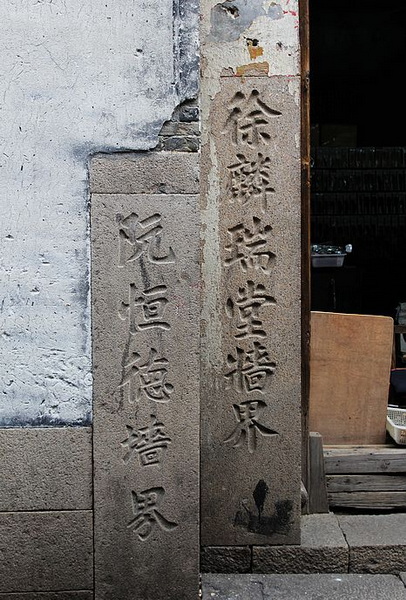 徐麟瑞堂墙界
阮恒德墙界